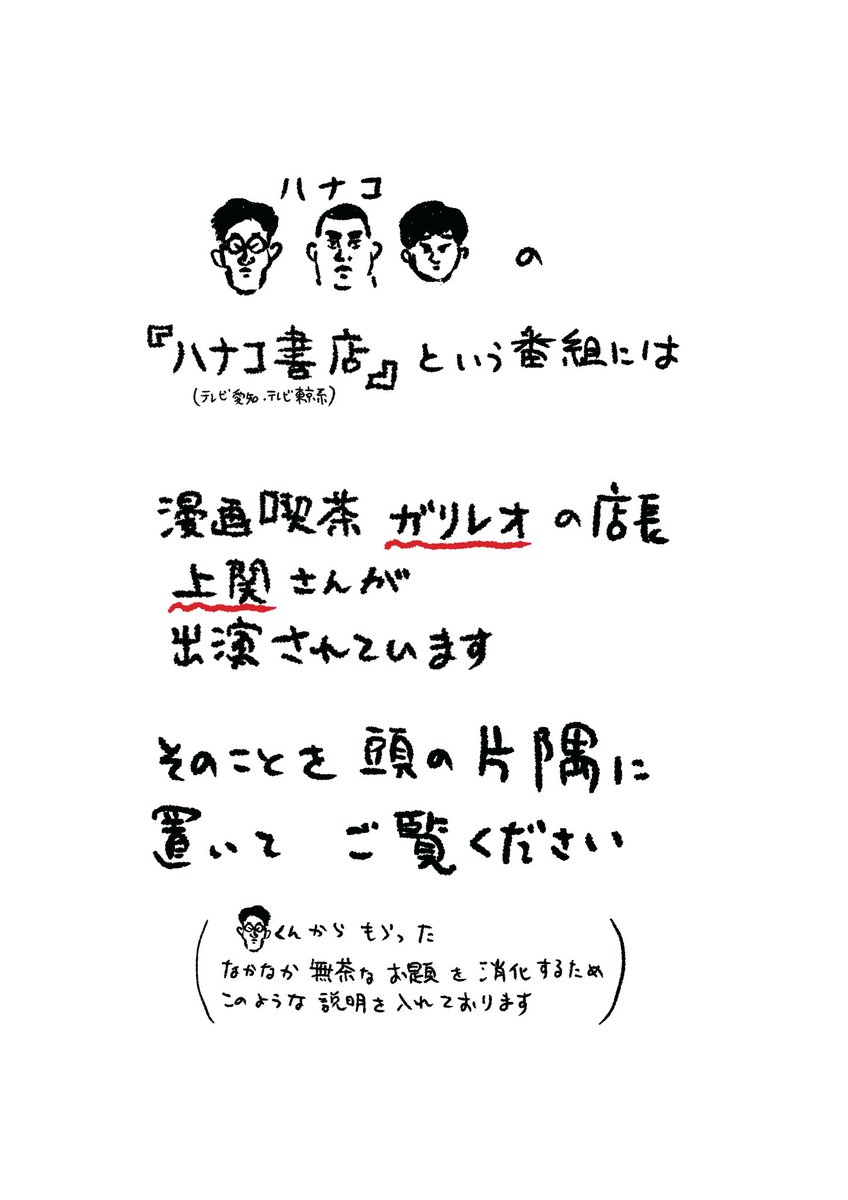 ハナコ
の
『ハナコ書店』という番組には
(テレビ愛知・テレビ東京系)
漫画喫茶 ガリレオの店長
上関さんが
出演されています
そのことを頭の片隅に
置いて ご覧ください
くんからもらった
なかなか無茶なお題を消化するため
このような説明を入れております